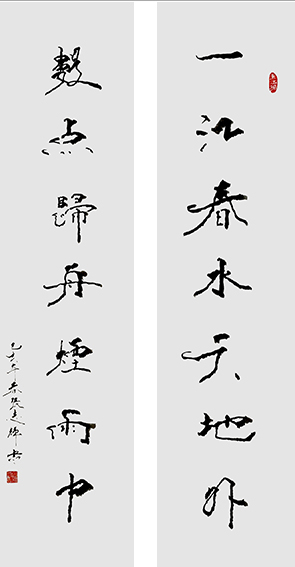 一江春水天地外
數点歸舟煙雨中
己亥年春